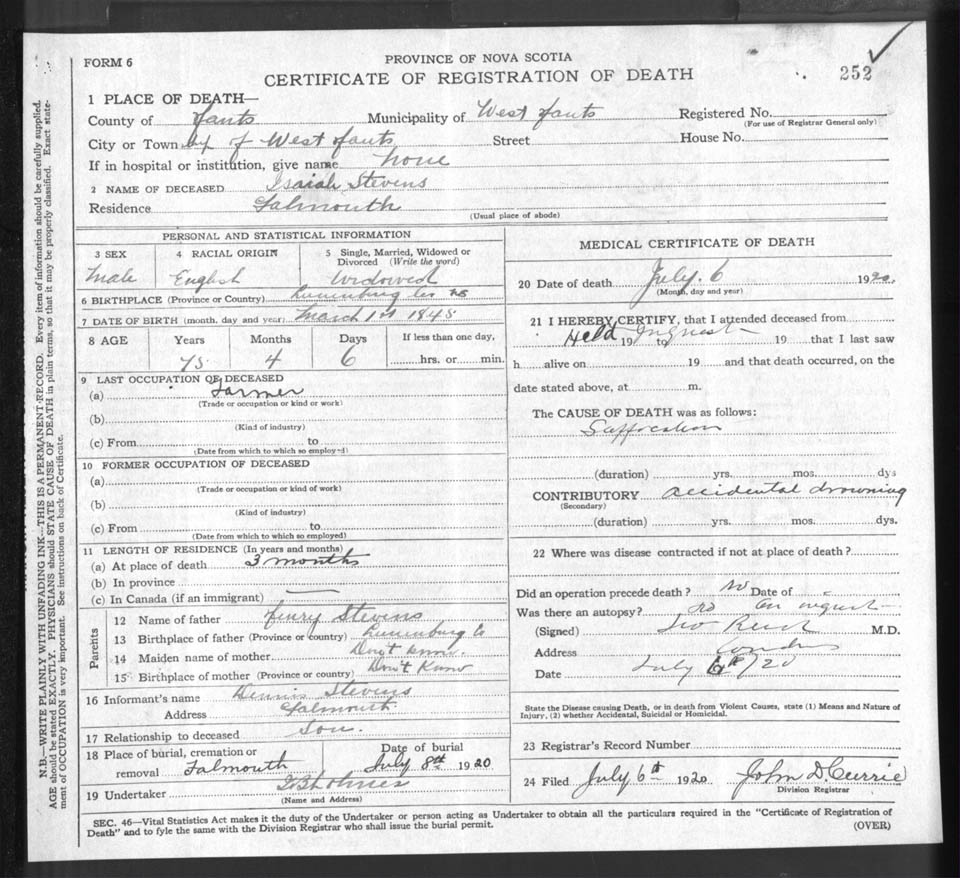 FORM 6
PROVINCE OF NOVA SCOTIA
CERTIFICATE OF REGISTRATION OF DEATH
252
1 PLACE OF DEATH—
County of Hants Municipality of West Hants Registered No.
(For use of Registrar General only)
City or Town of West Hants Street House No.
If in hospital or institution, give name None
2 NAME OF DECEASED Isaiah Stevens
Residence Falmouth
(Usual place of abode)
PERSONAL AND STATISTICAL INFORMATION
3 SEX 4 RACIAL ORIGIN 5 Single, Married, Widowed or Divorced (Write the word)
Male English Widowed
6 BIRTHPLACE (Province or Country) Lunenburg Co NS
7 DATE OF BIRTH (month, day and year) March 1st 1845
8 AGE Years Months Days If less than one day,
75 4 6 hrs. or min.
9 LAST OCCUPATION OF DECEASED
(a) Farmer
(Trade or occupation or kind or work)
(b)
(Kind of industry)
(c) From to
(Date from which to which so employed)
10 FORMER OCCUPATION OF DECEASED
(a)
(Trade or occupation or kind of work)
(b)
(Kind of industry)
(c) From to
(Date from which to which so employed)
11 LENGTH OF RESIDENCE (In years and months)
(a) At place of death 3 months
(b) In province
(c) In Canada (if an immigrant)
Parents
12 Name of father Henry Stevens
13 Birthplace of father (Province or country) Lunenburg Co
14 Maiden name of mother Don't know.
15 Birthplace of mother (Province or country) Don't Know
16 Informant's name Dennis Stevens
Address Falmouth
17 Relationship to deceased Son.
18 Place of burial, cremation or removal Falmouth Date of burial July 8th 1920
19 Undertaker Holmes
(Name and Address)
MEDICAL CERTIFICATE OF DEATH
20 Date of death July 6 1920.
(Month, day and year)
21 I HEREBY CERTIFY, that I attended deceased from
Held Inquest
19 to 19 that I last saw
h alive on 19 and that death occurred, on the
date stated above, at m.
The CAUSE OF DEATH was as follows:
Suffocation
(duration) yrs. mos. dys
CONTRIBUTORY accidental drowning
(Secondary)
(duration) yrs. mos. dys.
22 Where was disease contracted if not at place of death?
Did an operation precede death? No Date of
Was there an autopsy? no an inquest
(Signed) M.D.
Address
Date July 6th/20
State the Disease causing Death, or in death from Violent Causes, state (1) Means and Nature of
Injury, (2) whether Accidental, Suicidal or Homicidal.
23 Registrar's Record Number
24 Filed July 6th 1920 John D. Currie
Division Registrar
SEC. 46—Vital Statistics Act makes it the duty of the Undertaker or person acting as Undertaker to obtain all the particulars required in the "Certificate of Registration of
Death" and to fyle the same with the Division Registrar who shall issue the burial permit.
(OVER)
N.B.—WRITE PLAINLY WITH UNFADING INK—THIS IS A PERMANENT RECORD. Every item of information should be carefully supplied.
AGE should be stated EXACTLY. PHYSICIANS should STATE CAUSE OF DEATH in plain terms, so that it may be properly classified. Exact state-
ment of OCCUPATION is very important. See instructions on back of Certificate.